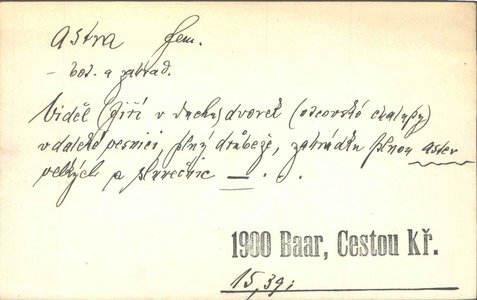 astra fem.
– bot. a zahrad.
Viděl (Jiří v duchu) dvorek (otcovské chalupy)
v daleké vesnici, plný drůbeže, zahrádku plnou aster
velkých a slunečnic — . .
1900 Baar, Cestou Kř.
15, 39;